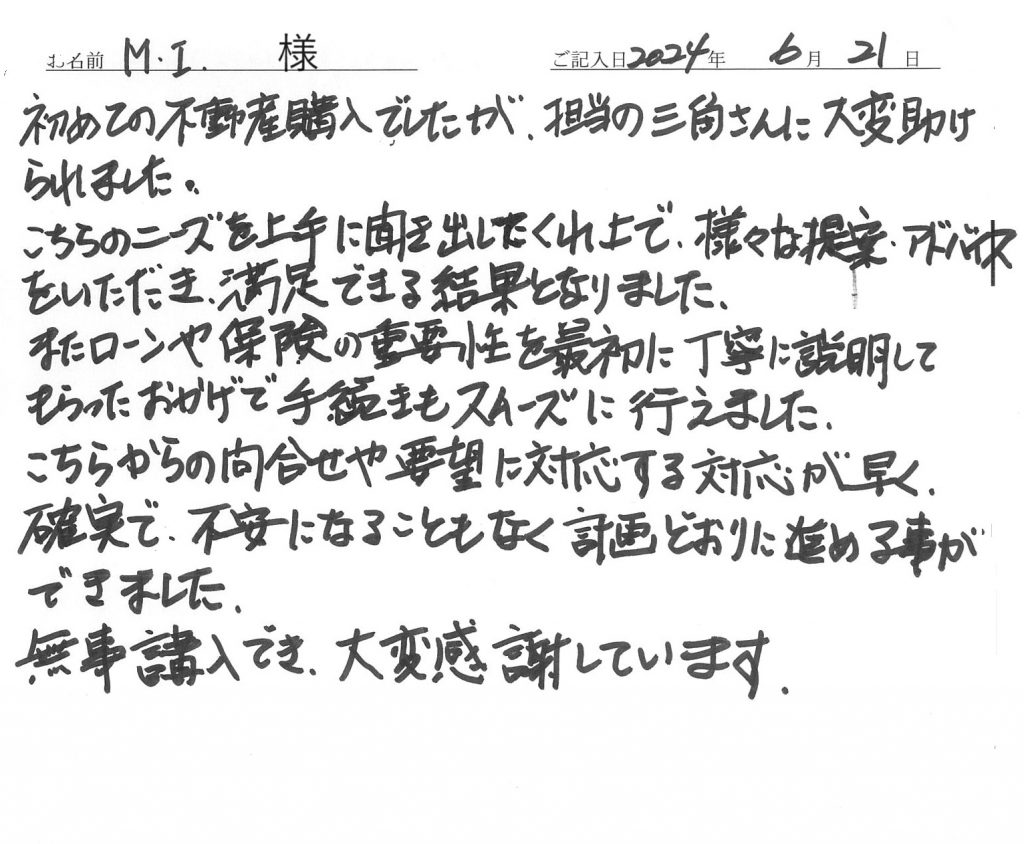 お名前 M.I. 様 ご記入日2024年 6月 21日
初めての不動産購入でしたが、担当の三角さんに大変助け
られました。
こちらのニーズを上手に聞き出したくれ上で、様々な提案・アドバイス
をいただき、満足できる結果となりました。
またローンや保険の重要性を最初に丁寧に説明して
もらったおかげで手続きもスムーズに行えました。
こちらからの問合せや要望に対応する対応が早く、
確実で、不安になることもなく計画どおりに進める事が
できました。
無事講入でき、大変感謝しています。